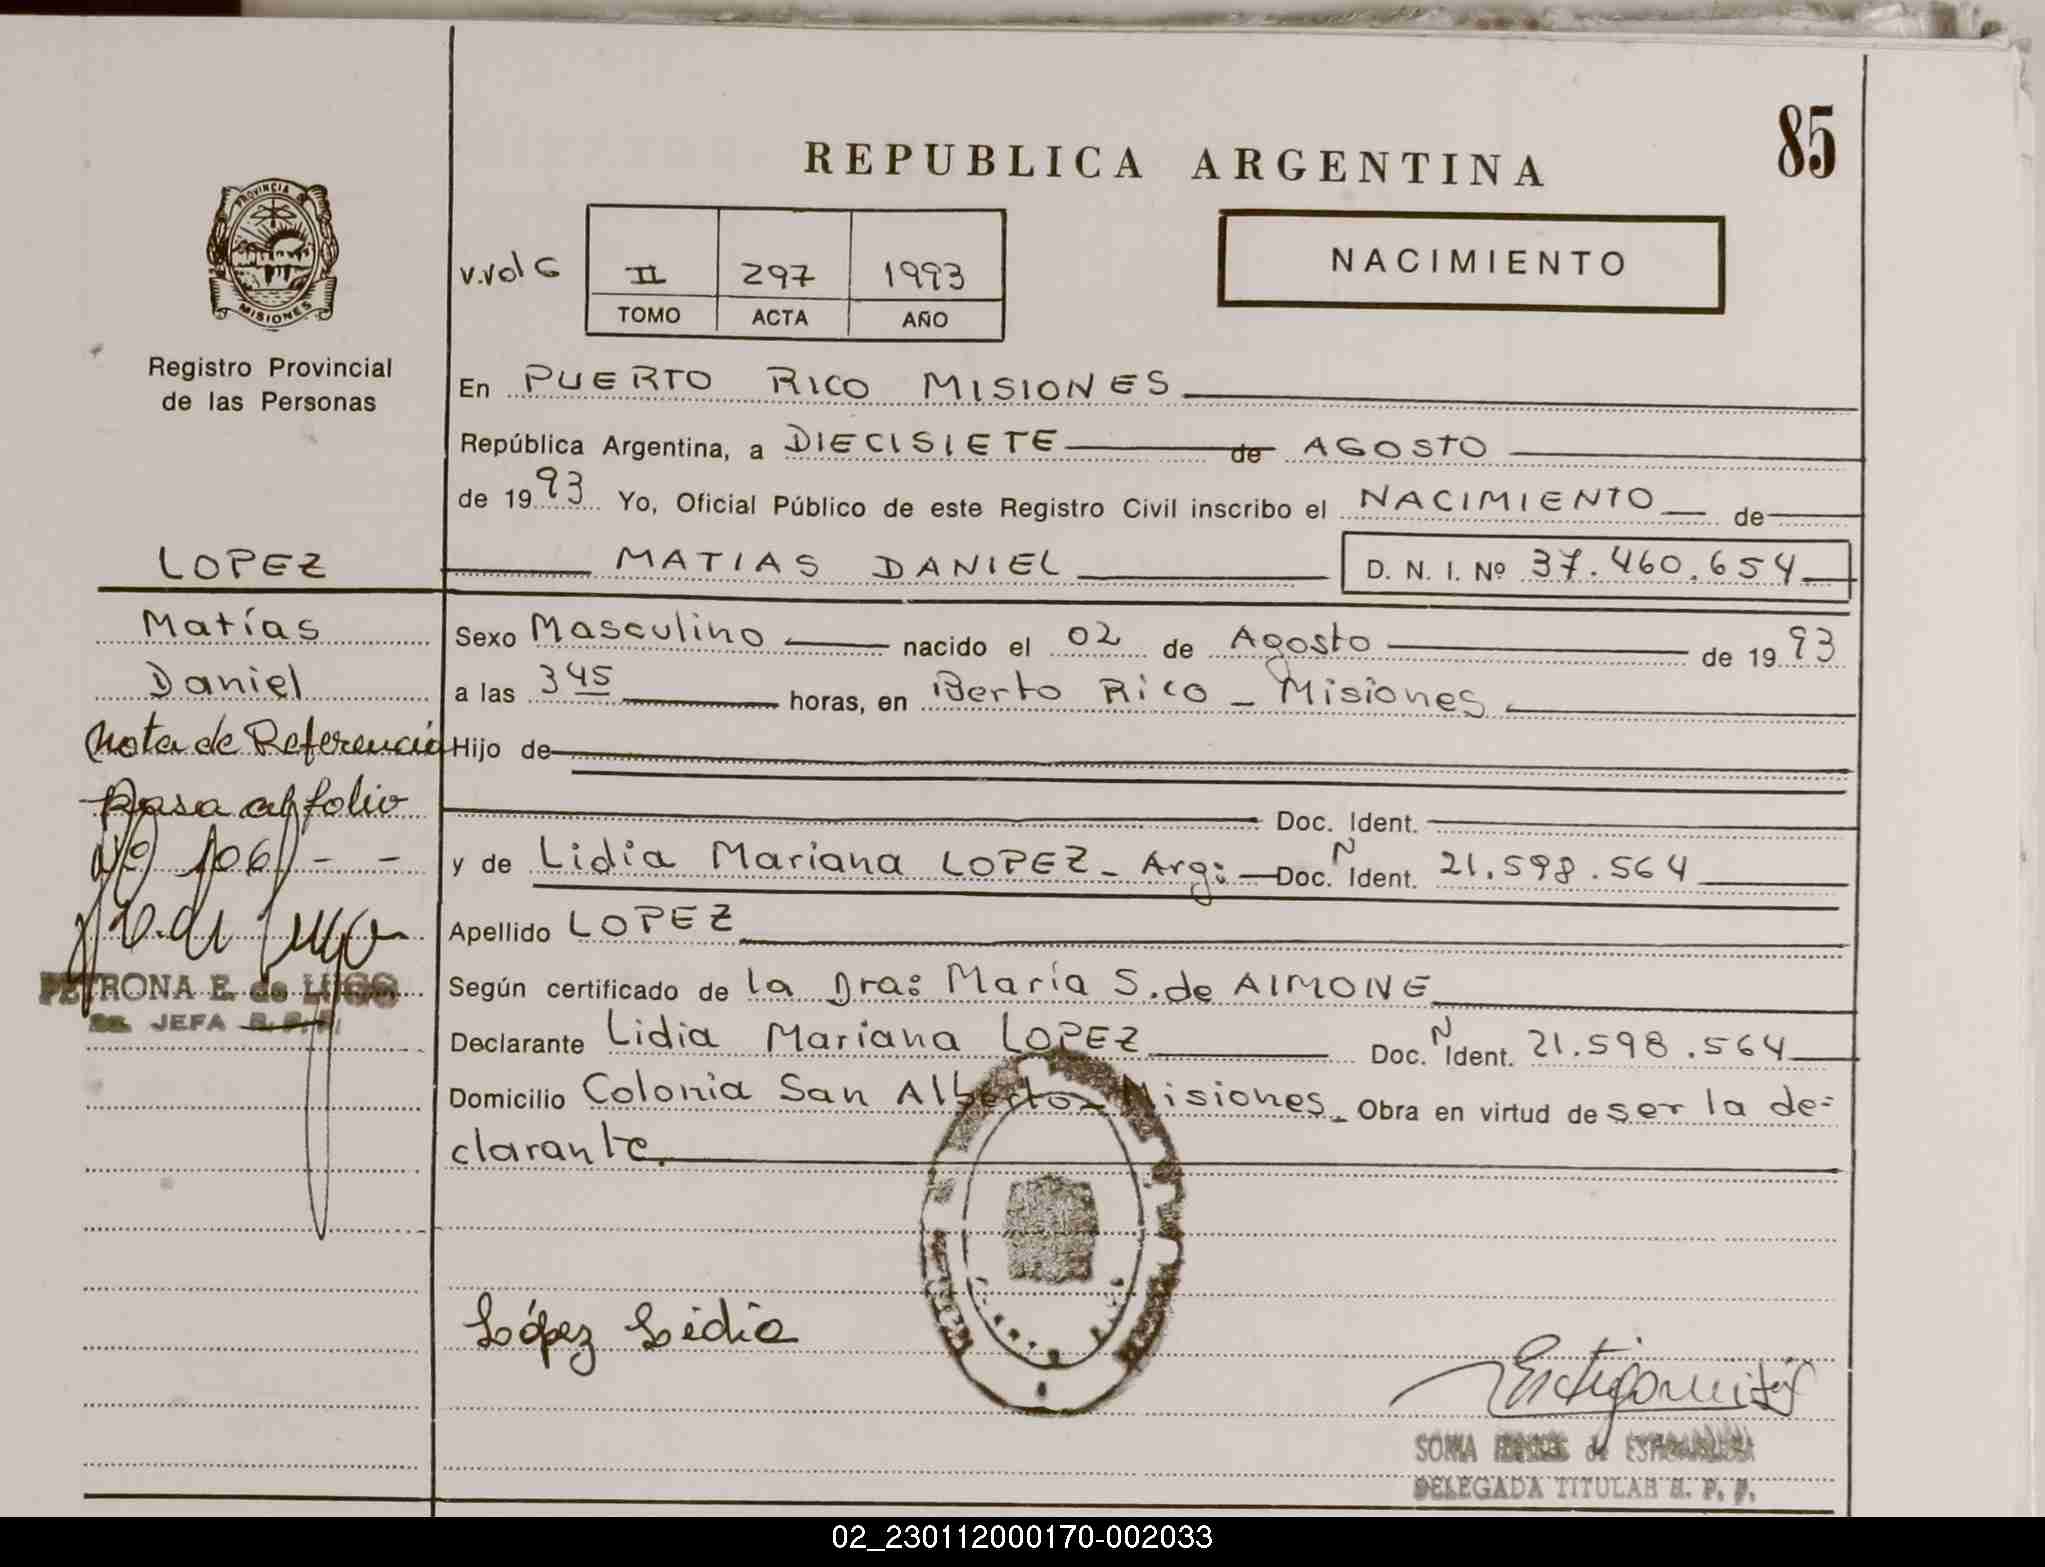 REPUBLICA ARGENTINA
85
PROVINCIA DE
MISIONES
Registro Provincial
de las Personas
v.vol 6
II 297 1993
TOMO ACTA AÑO
NACIMIENTO
En PUERTO RICO MISIONES
República Argentina, a DIECISIETE de AGOSTO
de 1993 Yo, Oficial Público de este Registro Civil inscribo el NACIMIENTO de
MATIAS DANIEL D. N. I. Nº 37.460.654
Sexo Masculino nacido el 02 de Agosto de 1993
a las 3 45 horas, en Pierto Rico - Misiones
Hijo de
Doc. Ident.
y de Lidia Mariana LOPEZ - Arg: Doc. N Ident. 21.598.564
Apellido LOPEZ
Según certificado de la Dra: María S. de AIMONE
Declarante Lidia Mariana LOPEZ Doc. N Ident. 21.598.564
Domicilio Colonia San Alberto - Misiones - Obra en virtud de ser la de=
clarante.
LOPEZ
Matías
Daniel
Nota de Referencia
Pasa al folio
Nº 106 - -
PETRONA E. de LUGO
JEFA
López Lidia
SONIA de
DELEGADA TITULAR R. P. P.
02_230112000170-002033